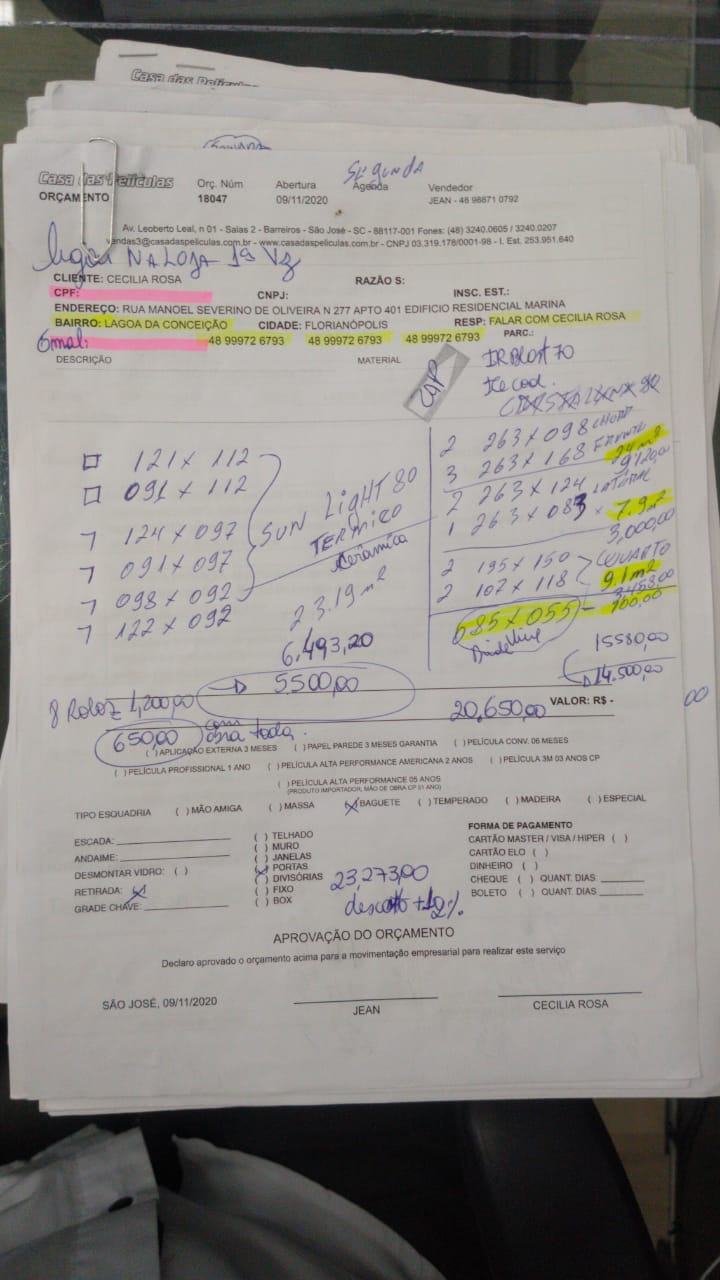 Casa das Películas
Casa das Películas
ORÇAMENTO
Orç. Núm
18047
Abertura
09/11/2020
Segunda
Agenda
Vendedor
JEAN - 48 98871 0792
Av. Leoberto Leal, n 01 - Salas 2 - Barreiros - São José - SC - 88117-001 Fones: (48) 3240.0605 / 3240.0207
vendas3@casadaspeliculas.com.br - www.casadaspeliculas.com.br - CNPJ 03.319.178/0001-98 - I. Est. 253.951.640
NA LOJA 1ª VZ
CLIENTE: CECILIA ROSA RAZÃO S:
CPF: CNPJ: INSC. EST.:
ENDEREÇO: RUA MANOEL SEVERINO DE OLIVEIRA N 277 APTO 401 EDIFICIO RESIDENCIAL MARINA
BAIRRO: LAGOA DA CONCEIÇÃO CIDADE: FLORIANÓPOLIS RESP: FALAR COM CECILIA ROSA
Email: 48 99972 6793 48 99972 6793 48 99972 6793 PARC.:
DESCRIÇÃO MATERIAL
121 x 112
091 x 112
124 x 097
091 x 097
098 x 092
122 x 092
SUN LIGHT 80
TERMICO
Cerâmica
23.19 m²
6.493,20
5500,00
8 Rolos 1,200,00
650,00 com obra toda.
IRBlast 70
2 263 x 098
3 263 x 168 FRENTE
24 m²
9120,00
2 263 x 124 LATERAL
1 263 x 083 x 7.9 m²
3,000,00
2 195 x 150 QUARTO
2 107 x 118 9.1 m²
3458,00
685 x 055 -
15580,00
14.500,00
20,650,00 VALOR: R$ -
00
( ) APLICAÇÃO EXTERNA 3 MESES ( ) PAPEL PAREDE 3 MESES GARANTIA ( ) PELÍCULA CONV. 06 MESES
( ) PELÍCULA PROFISSIONAL 1 ANO ( ) PELÍCULA ALTA PERFORMANCE AMERICANA 2 ANOS ( ) PELÍCULA 3M 03 ANOS CP
( ) PELÍCULA ALTA PERFORMANCE 05 ANOS
(PRODUTO IMPORTADOR, MÃO DE OBRA CP 01 ANO)
TIPO ESQUADRIA ( ) MÃO AMIGA ( ) MASSA (X) BAGUETE ( ) TEMPERADO ( ) MADEIRA ( ) ESPECIAL
ESCADA:
ANDAIME:
DESMONTAR VIDRO: ( )
RETIRADA: (X)
GRADE CHAVE:
( ) TELHADO
( ) MURO
( ) JANELAS
(X) PORTAS
( ) DIVISÓRIAS
( ) FIXO
( ) BOX
23,273,00
FORMA DE PAGAMENTO
CARTÃO MASTER / VISA / HIPER ( )
CARTÃO ELO ( )
DINHEIRO ( )
CHEQUE ( ) QUANT. DIAS:
BOLETO ( ) QUANT. DIAS
APROVAÇÃO DO ORÇAMENTO
Declaro aprovado o orçamento acima para a movimentação empresarial para realizar este serviço
SÃO JOSÉ, 09/11/2020
JEAN
CECILIA ROSA